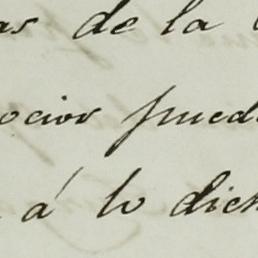 as de la
ocios pued
á lo dich